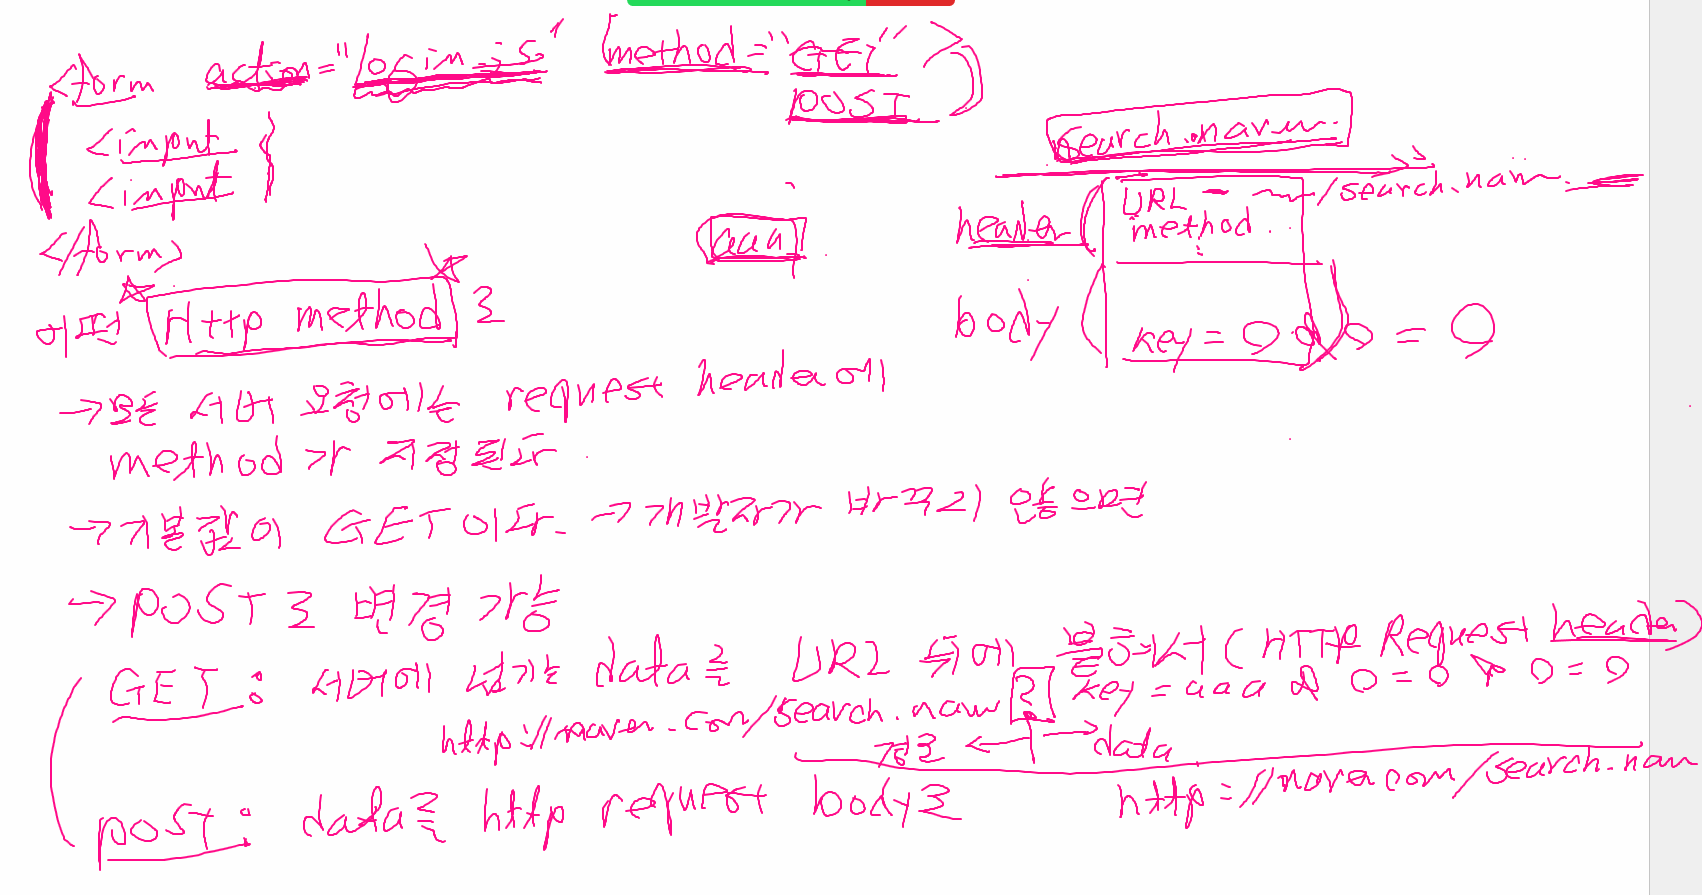 <form action="login.js" (method="GET" >)
POST
<input
<input
</form>
search.naver
URL - ~/search.naver
method
header
aaa
body
key = O & O = O
어떤 Http method로
→모든 서버 요청에는 request header에
method가 지정된다
→기본값이 GET이다. →개발자가 바꾸지 않으면
→POST로 변경 가능
GET: 서버에 넘기는 data를 URL 뒤에 붙여서 (HTTP Request header)
http://naver.com/search.naver ? key=aaa & O=O & O=O
경로 ← → data
POST: data를 http request body로
http://naver.com/search.naver